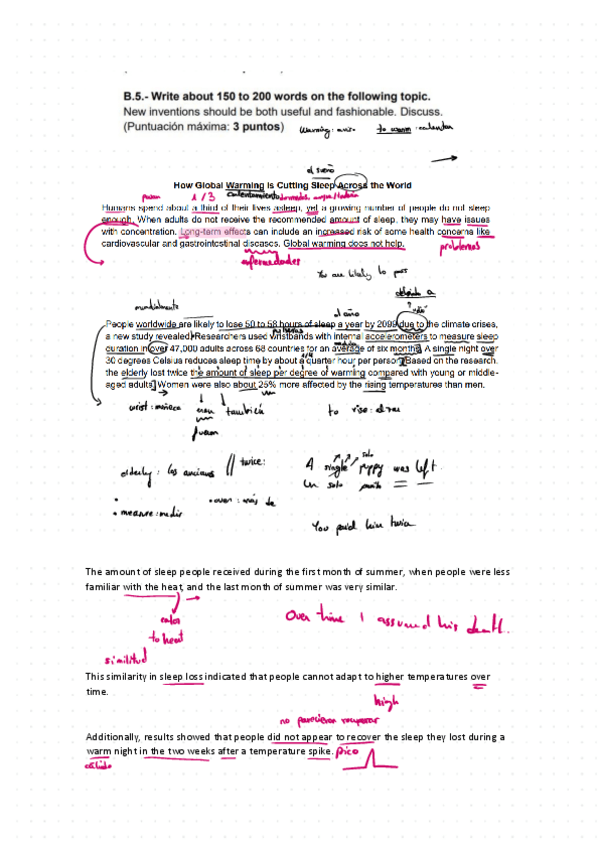 B.5.- Write about 150 to 200 words on the following topic.
New inventions should be both useful and fashionable. Discuss.
(Puntuación máxima: 3 puntos) Warning: aviso to warm: calentar
el sueño
How Global Warming Is Cutting Sleep Across the World
pasan 1/3 calentamiento dormidos,
Humans spend about a third of their lives asleep, yet a growing number of people do not sleep
enough. When adults do not receive the recommended amount of sleep, they may have issues
with concentration. Long-term effects can include an increased risk of some health concerns like
cardiovascular and gastrointestinal diseases. Global warming does not help.
enfermedades problemas
You are likely to pass
debido a
mundialmente el año
People worldwide are likely to lose 50 to 58 hours of sleep a year by 2099 due to the climate crises,
a new study revealed. Researchers used wristbands with internal accelerometers to measure sleep
pulseras
duration in over 47,000 adults across 68 countries for an average of six months. A single night over
30 degrees Celsius reduces sleep time by about a quarter hour per person. Based on the research,
1/4
the elderly lost twice the amount of sleep per degree of warming compared with young or middle-
aged adults. Women were also about 25% more affected by the rising temperatures than men.
wrist: muñeca eran también to rise: elevar
fueron
solo
elderly: los ancianos // twice: A single puppy was left.
Un solo
• over: más de
• measure: medir
You paid him twice
The amount of sleep people received during the first month of summer, when people were less
familiar with the heat, and the last month of summer was very similar.
calor
Over time I assumed his death.
to heat
similitud
This similarity in sleep loss indicated that people cannot adapt to higher temperatures over
time.
high
no parecieron recuperar
Additionally, results showed that people did not appear to recover the sleep they lost during a
warm night in the two weeks after a temperature spike. pico
cálido